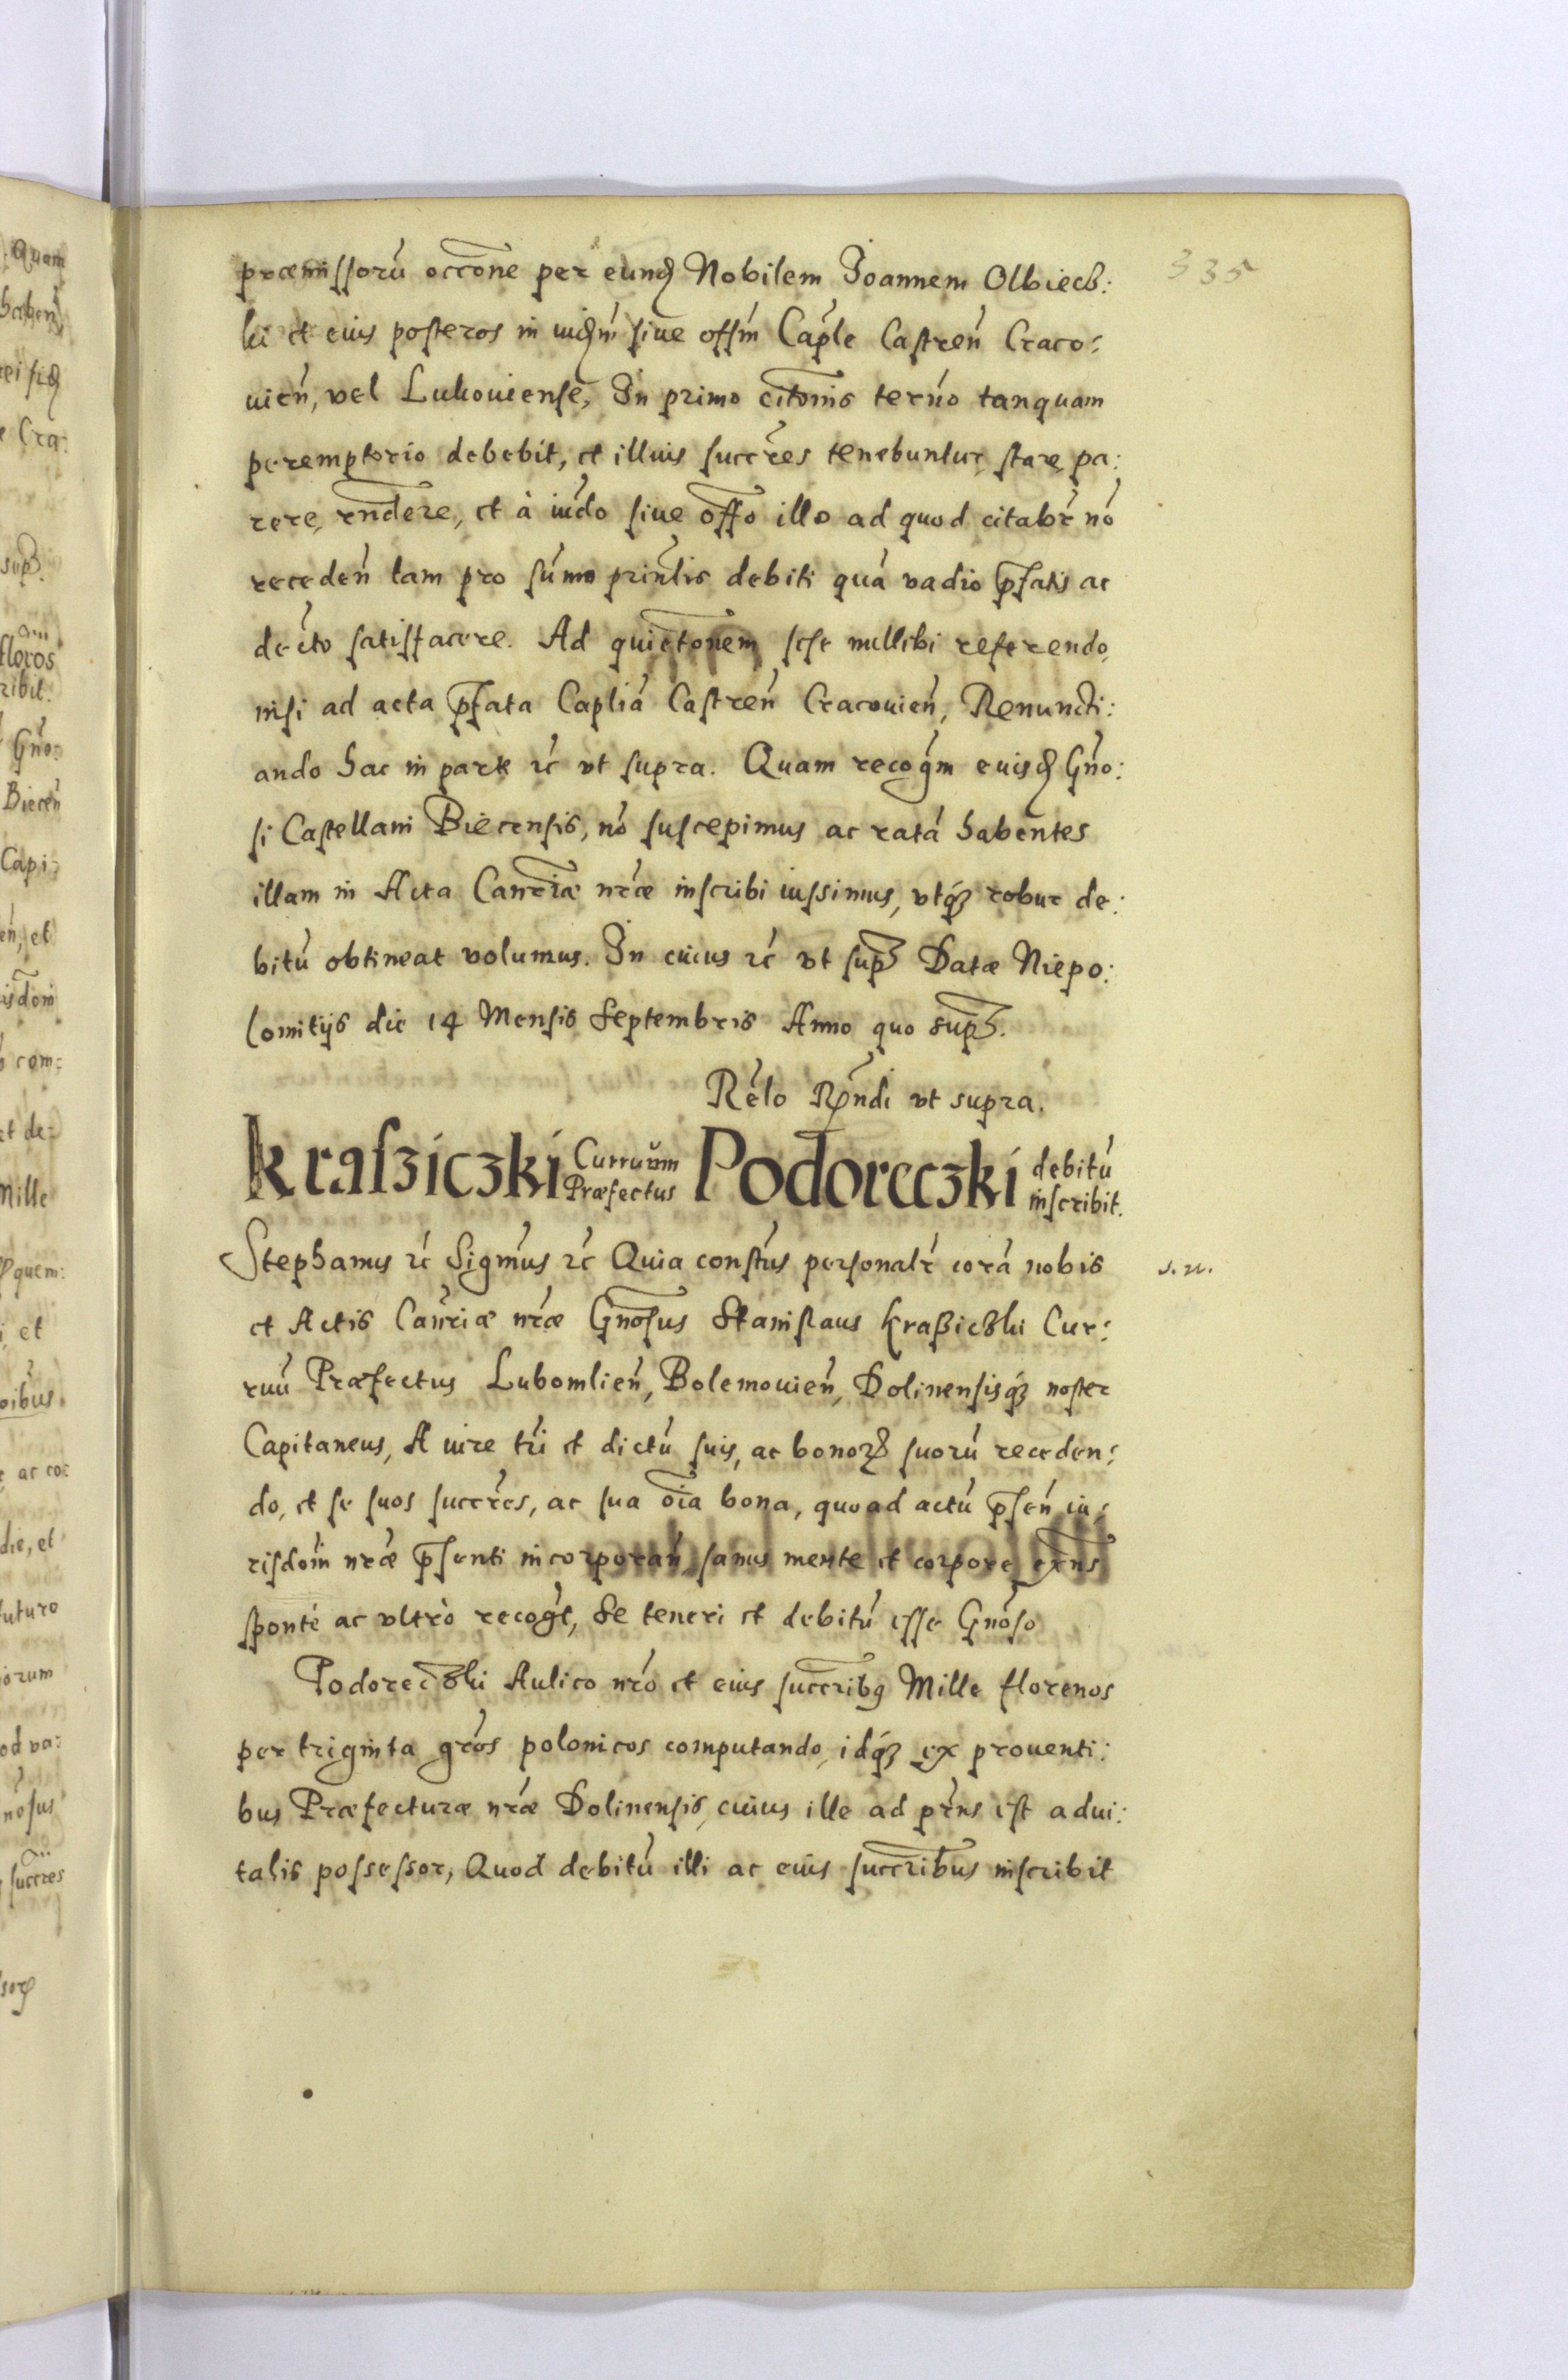 335
præmissorũ occõne per eund̃ Nobilem Joannem Olbiecz:
ki et eius posteros in iud̃m siue off̃m Cap̃le Castreñ Craco:
uieñ, vel Lukouiense, In primo citõnis ter̃no tanquam
peremptorio debebit, et illius succ̃res tenebuntur, stare, pa:
rere, rñdere, et à iud̃o siue off̃o illo ad quod citabr̃ nõ
recedeñ tam pro sũma prin̄lis debiti quã vadio p̃fatis ac
dec̃to satisfacere. Ad quietõnem sese nullibi referendo,
nisi ad acta p̃fata Capliã Castreñ Cracouieñ, Renuncti:
ando hac in parte rc̃ vt supra. Quam recog̃m euisd̃ Gño:
si Castellani Biecensis, nõ suscepimus ac ratã habentes
illam in Acta Canc̃riæ nr̃æ inscribi iussimus, vtq́ robur de:
bitũ obtineat volumus. In cuius rc̃ vt sup̃ Datæ Niepo:
lomitijs die 14 Mensis Septembris Anno quo sup̃.
Rẽlo Rñdi vt supra.
Krasziczki Curruum Præfectus Podoreczki debitũ inscribit.
Stephanus rc̃ Sigm̃us rc̃ Quia const̃us personalr̃ corã nobis
s. n.
et Actis Canc̃riæ nr̃æ Gñosus Stanislaus Kraßiczki Cur:
ruũ Præfectus Lubomlieñ, Bolemouieñ, Dolinensisq́ noster
Capitaneus, A iure tr̃i et dictũ suis, ac bonor̃ suorũ receden:
do, et se suos succ̃res, ac sua oĩa bona, quoad actũ p̃señ iu:
risdoñi nr̃æ p̃senti incorporañ, sanus mente et corpore exñs
sponte ac vltrò recog̃t, Se teneri et debitũ esse Gñoso
Podoreczki Aulico nr̃o et eius succ̃ribq Mille florenos
per triginta gr̃os polonicos computando, idq́ ex prouenti:
bus Præfecturæ nr̃æ Dolinensis, cuius ille ad pr̃ns est adui:
talis possessor, Quod debitũ illi ac eius succ̃ribus inscribit